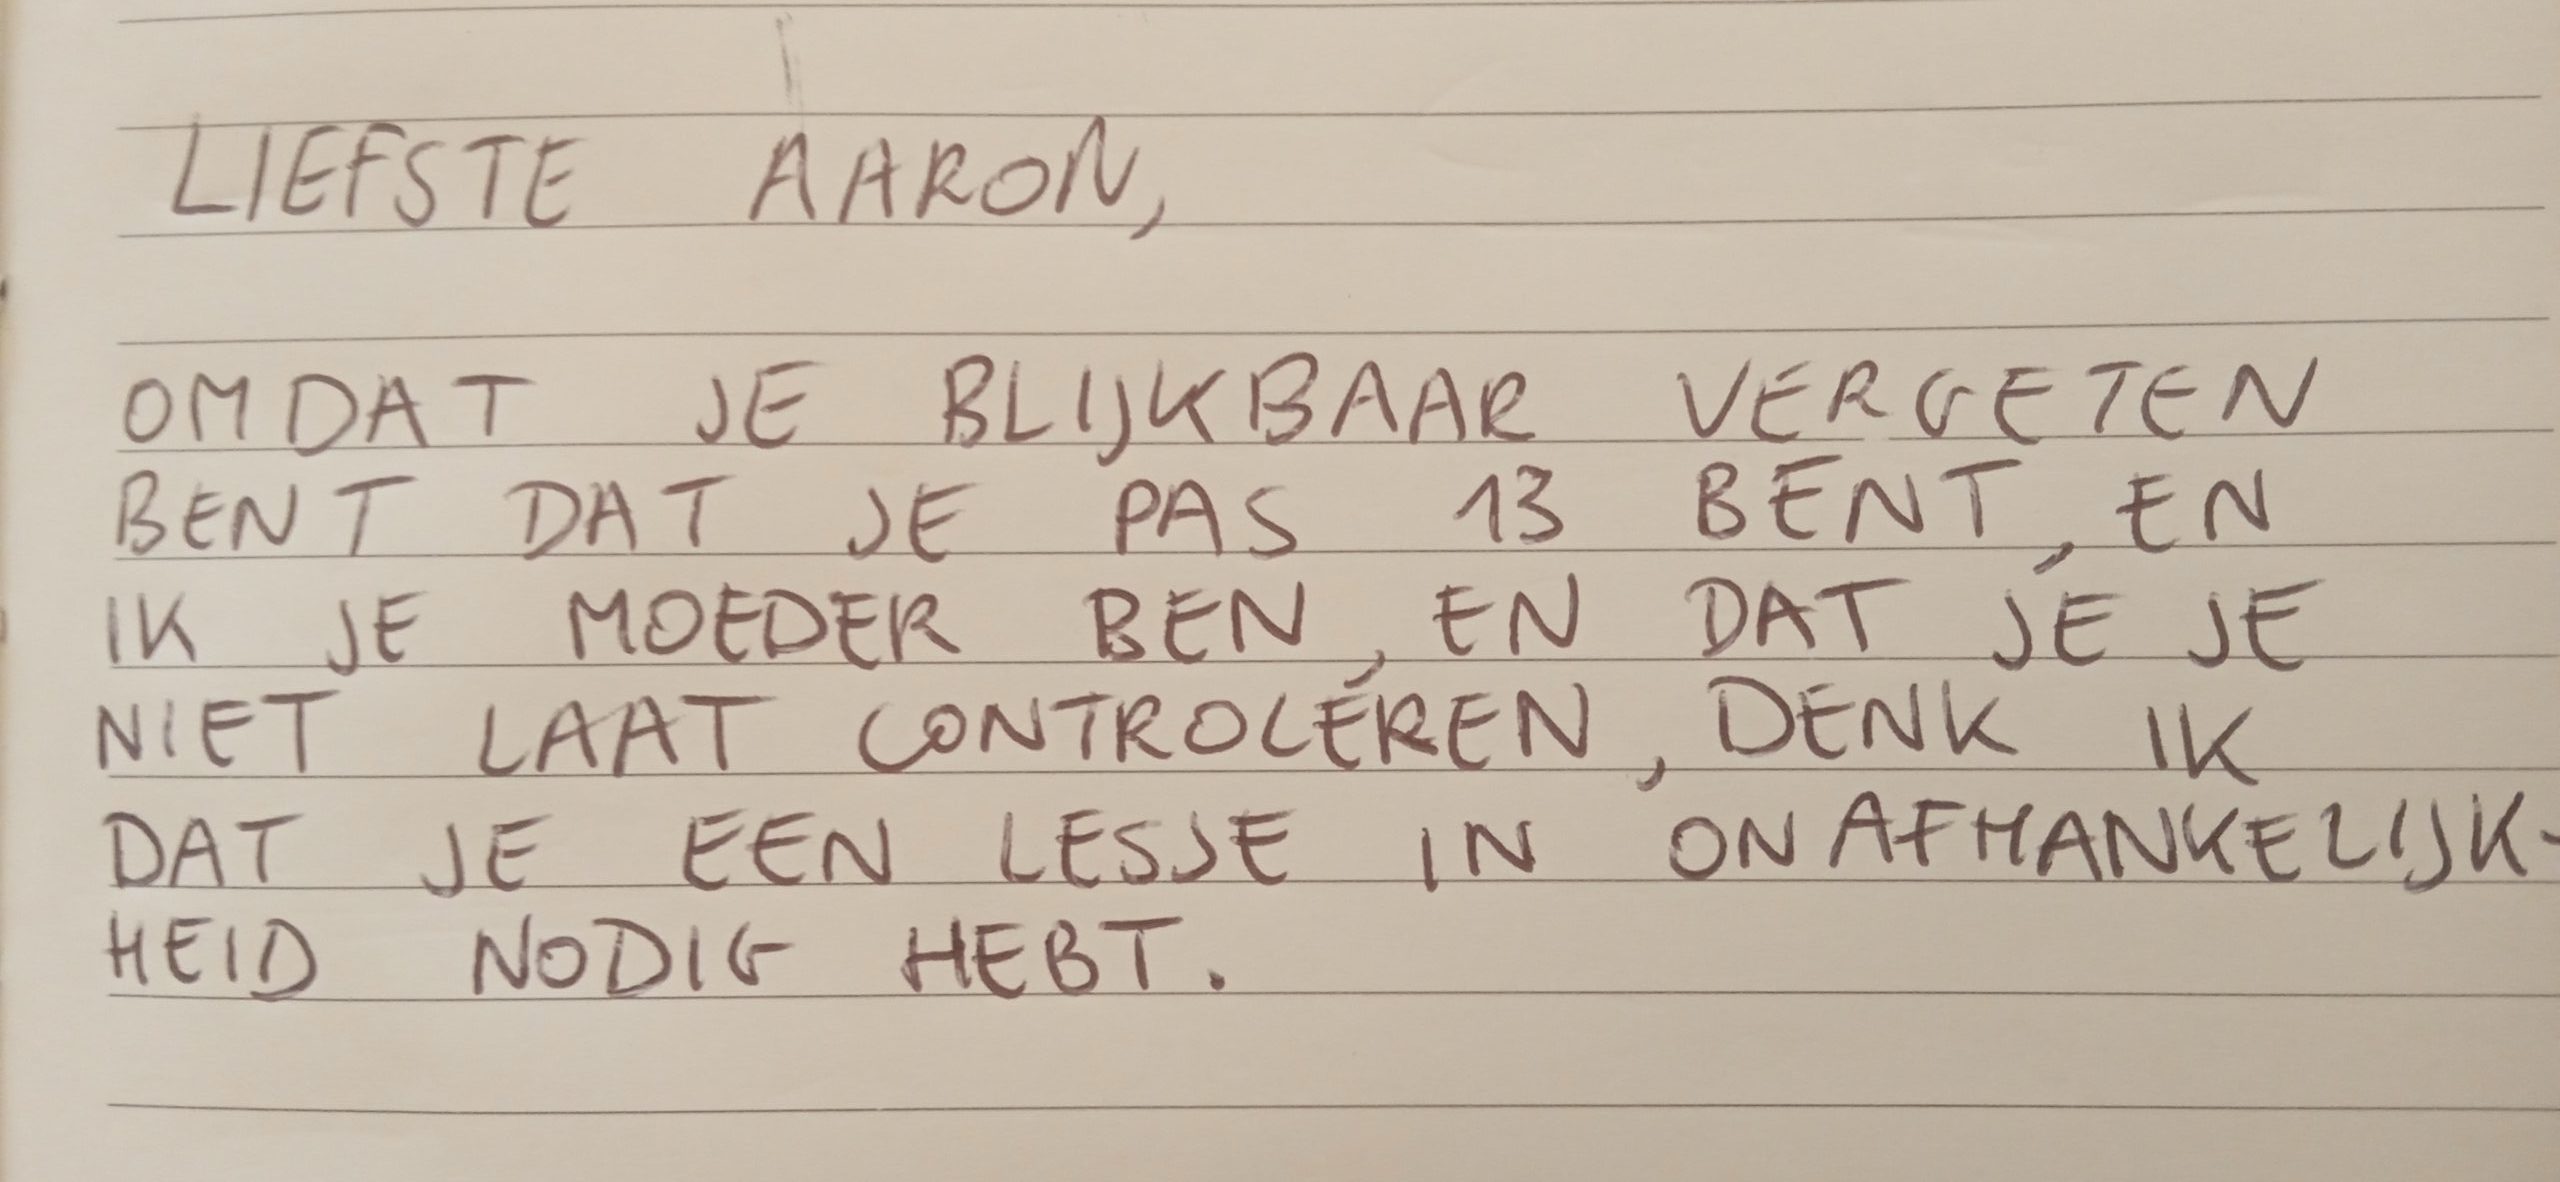 LIEFSTE AARON,
OMDAT JE BLIJKBAAR VERGETEN
BENT DAT JE PAS 13 BENT, EN
IK JE MOEDER BEN, EN DAT JE JE
NIET LAAT CONTROLEREN, DENK IK
DAT JE EEN LESJE IN ONAFHANKELIJK-
HEID NODIG HEBT.